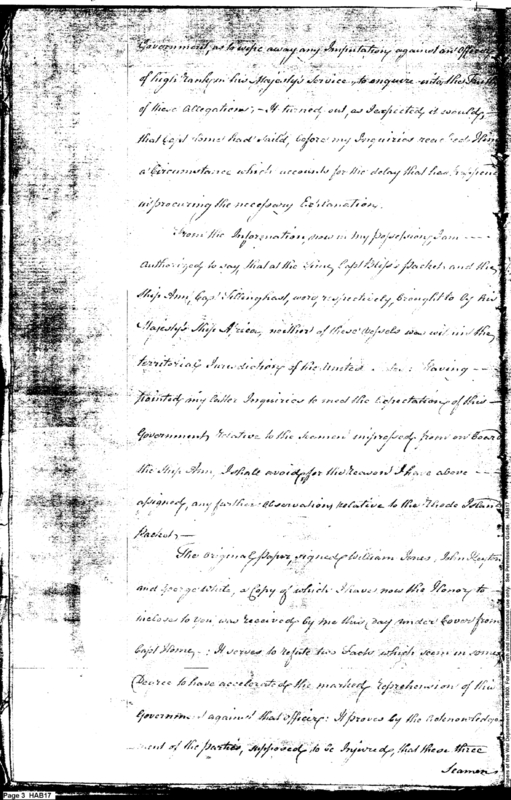 Government, as to wipe away any Imputation against an Officer
of high rank in his Majesty's Service, to enquire into the
of these Allegations; – It turned out, as I expected it would,
that Capt Home had sail'd, before my Inquiries reached Him
a Circumstance which accounts for the delay that has
in procuring the necessary Explanation.
From the Information, now in my possession, I am
authorized to say, that at the time, Capt Bliss's packet and the
Ship Ann, Capt Tillinghast, were, respectively, brought to by his
Majesty's Ship Africa, neither of these Vessels was within the
territorial Jurisdiction of the United : Having
pointed my latter Inquiries to meet the Expectation of this
Government, relative to the Seamen impressed from on board
the Ship Ann, I shall avoid, for the reason I have above
assigned, any further observation, relative to the Rhode Island
Packet, –
The original paper, signed William Jones, John
and George White, a Copy of which I have now the Honor to
inclose to you was received by me this day under Cover from
Capt Home, : It serves to refute two facts which seem in some
Degree to have accelerated the marked reprehension of this
Government against that officer: It proves by the acknowledge
ment of the parties, supposed to be Injured, that these three
Seamen
Page 3 HAB17